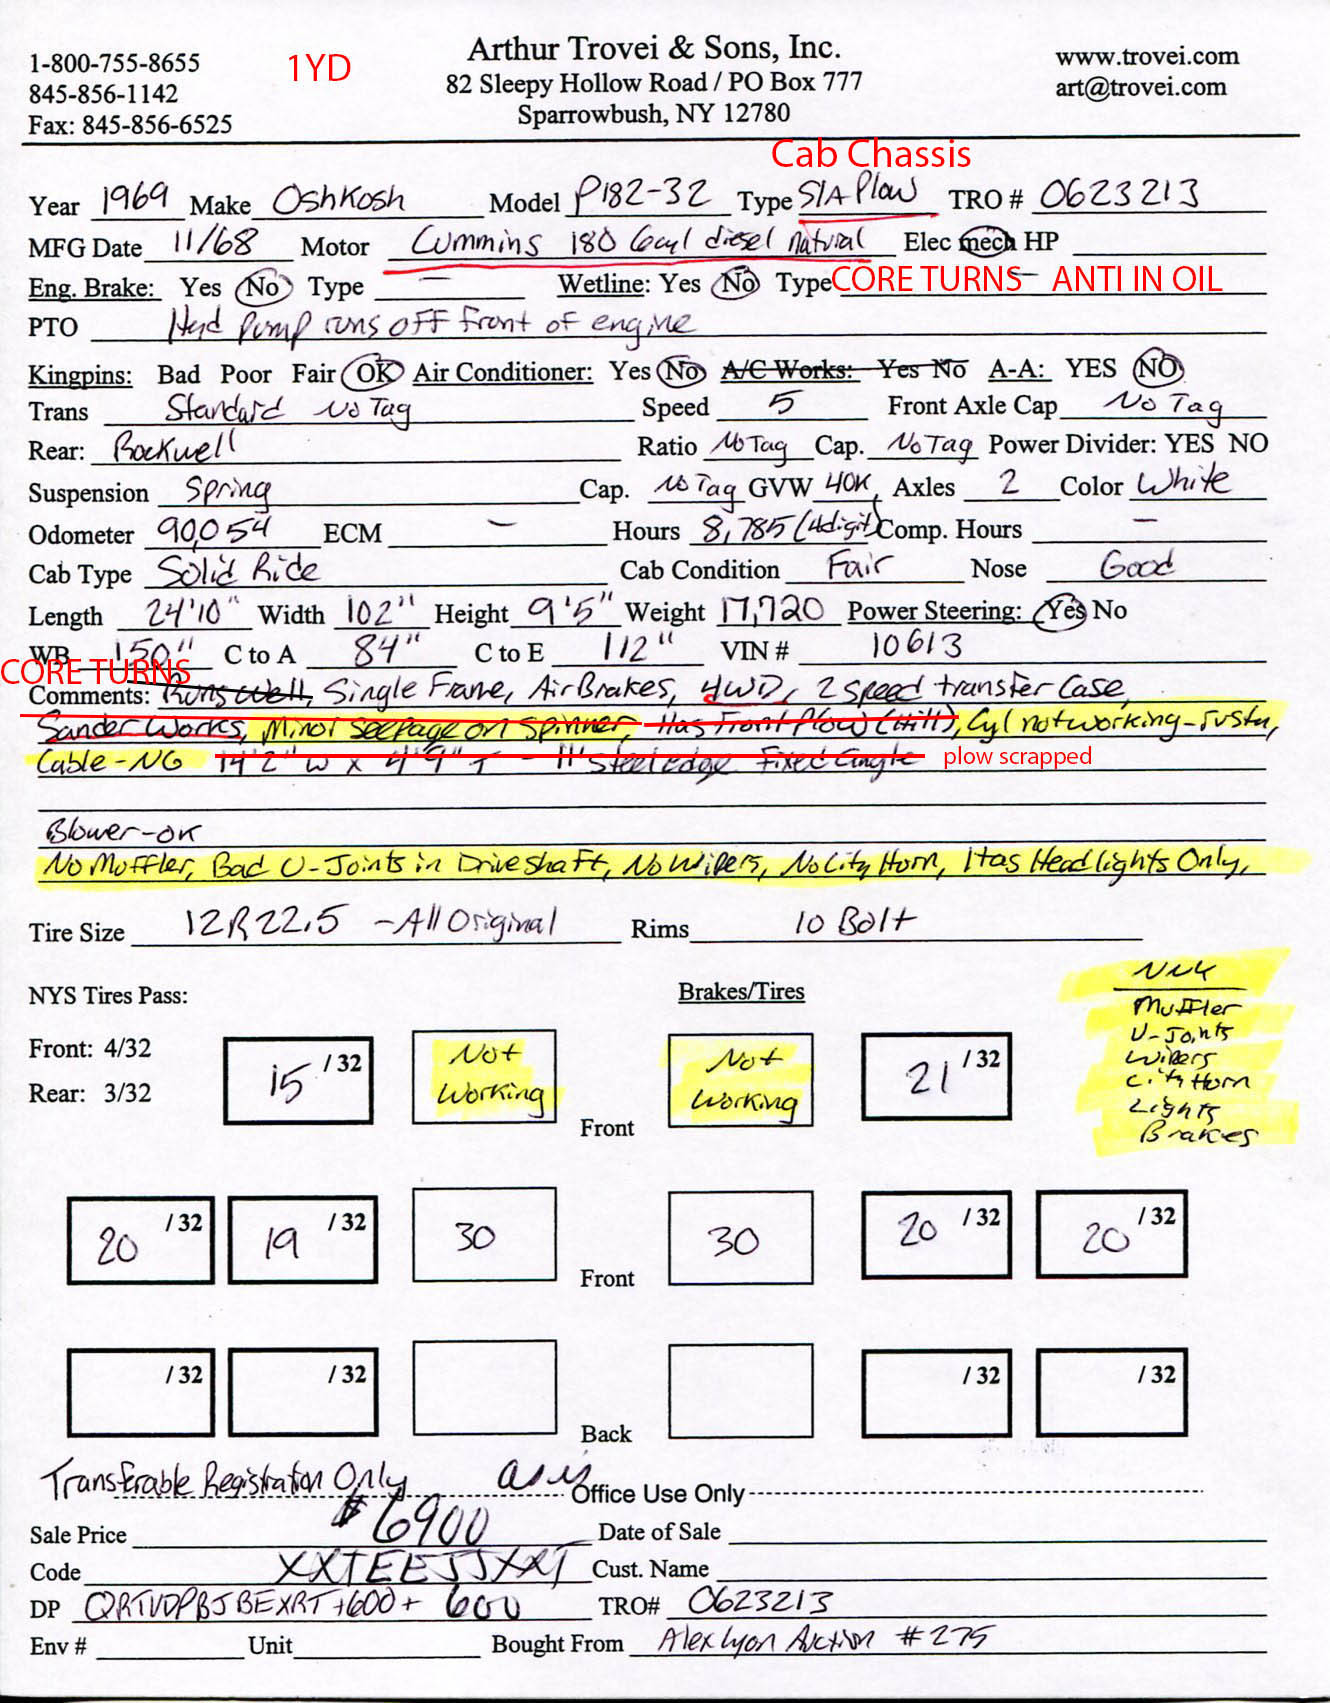 1-800-755-8655 1YD Arthur Trovei & Sons, Inc. www.trovei.com
845-856-1142 82 Sleepy Hollow Road / PO Box 777 art@trovei.com
Fax: 845-856-6525 Sparrowbush, NY 12780
Cab Chassis
Year 1969 Make Oshkosh Model P182-32 Type S/A Plow TRO # 0623213
MFG Date 11/68 Motor Cummins 180 6cyl diesel natural Elec mech HP
Eng. Brake: Yes No Type — Wetline: Yes No Type — CORE TURNS ANTI IN OIL
PTO Hyd pump runs off front of engine
Kingpins: Bad Poor Fair OK Air Conditioner: Yes No A/C Works: Yes No A-A: YES NO
Trans Standard No Tag Speed 5 Front Axle Cap No Tag
Rear: Rockwell Ratio No Tag Cap. No Tag Power Divider: YES NO
Suspension Spring Cap. No Tag GVW 40K Axles 2 Color White
Odometer 90,054 ECM — Hours 8,785 (4digit) Comp. Hours —
Cab Type Solid Ride Cab Condition Fair Nose Good
Length 24'10" Width 102" Height 9'5" Weight 17,720 Power Steering: Yes No
WB 150" C to A 84" C to E 112" VIN # 10613
CORE TURNS
Comments: Runs Well, Single Frame, Air Brakes, 4WD, 2 Speed transfer Case,
Sander Works, Minor Seepage on Spinner, Has Front Plow (Hill), Cyl not working - rusty,
Cable - NG 14'2" W x 4'9" T - 11" Steel edge Fixed angle plow scrapped
Blower - OK
No Muffler, Bad U-Joints in Driveshaft, No Wipers, No City Horn, Has Headlights Only,
Tire Size 12R22.5 - All Original Rims 10 Bolt
NYS Tires Pass: Brakes/Tires
Front: 4/32
Rear: 3/32
15 /32 Not Working Front Not Working 21 /32
Muffler
U-Joints
Wipers
City Horn
Lights
Brakes
20 /32 19 /32 30 Front 30 20 /32 20 /32
/32 /32 Back /32 /32
Transferable Registration Only as is Office Use Only
Sale Price $6900 Date of Sale
Code XXTEEJJXRT Cust. Name
DP QRTVDPBJBEXRT +600 + 600 TRO# 0623213
Env # Unit Bought From Alex Lyon Auction #275